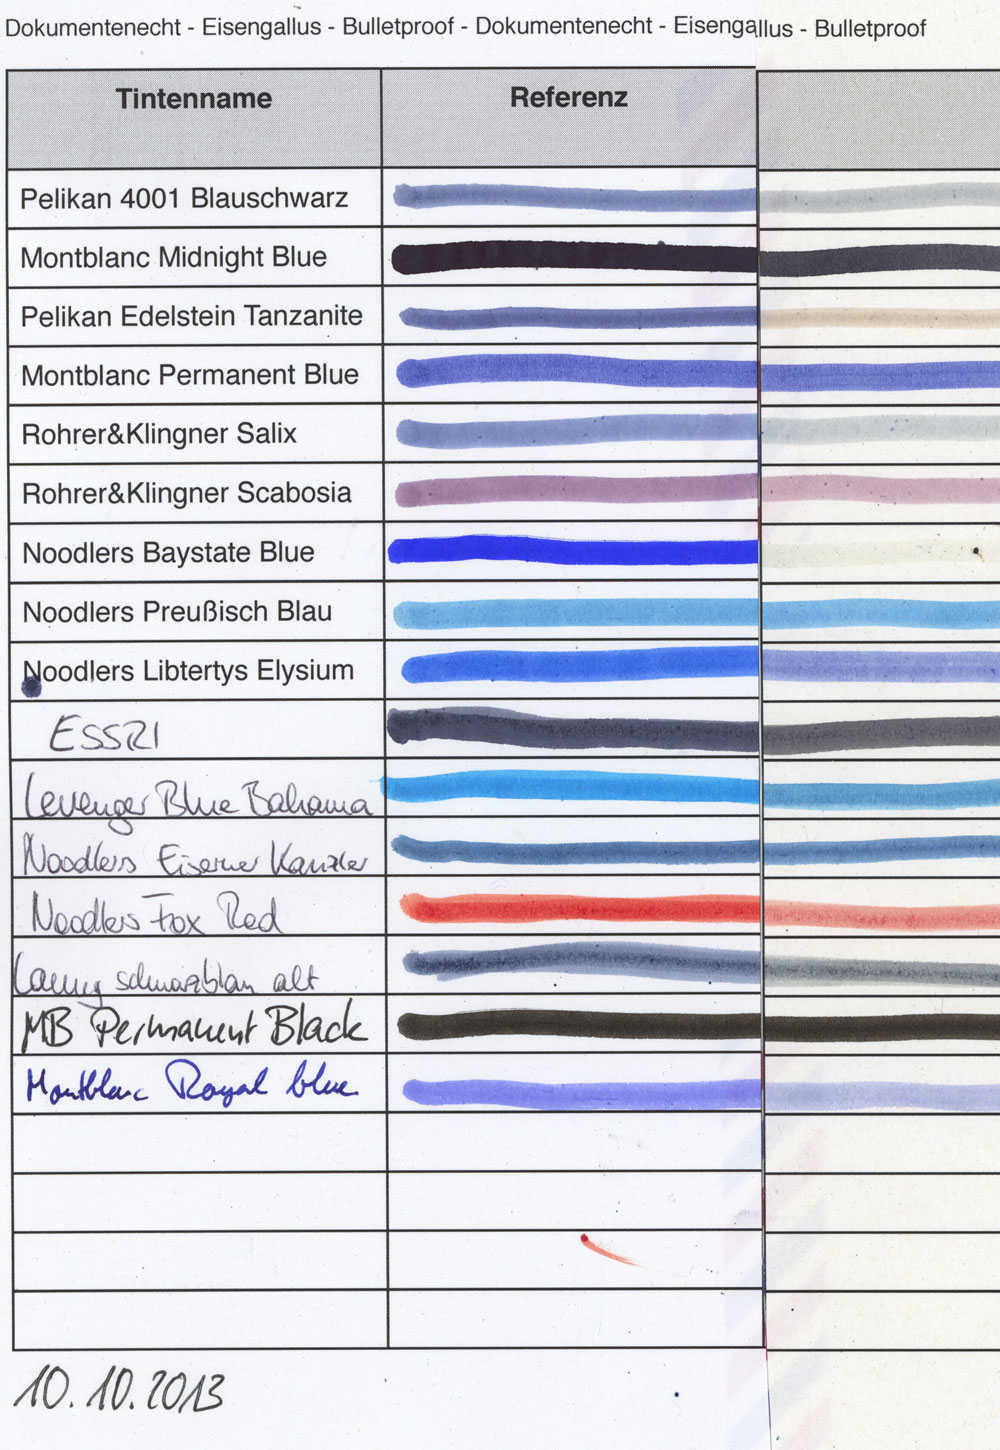 Dokumentenecht - Eisengallus - Bulletproof - Dokumentenecht - Eisengallus - Bulletproof
Tintenname Referenz
Pelikan 4001 Blauschwarz
Montblanc Midnight Blue
Pelikan Edelstein Tanzanite
Montblanc Permanent Blue
Rohrer&Klingner Salix
Rohrer&Klingner Scabosia
Noodlers Baystate Blue
Noodlers Preußisch Blau
Noodlers Libtertys Elysium
ESSRI
Levenger Blue Bahama
Noodlers Eiserner Kanzler
Noodlers Fox Red
Lamy schwarzblau alt
MB Permanent Black
Montblanc Royal blue
10.10.2013